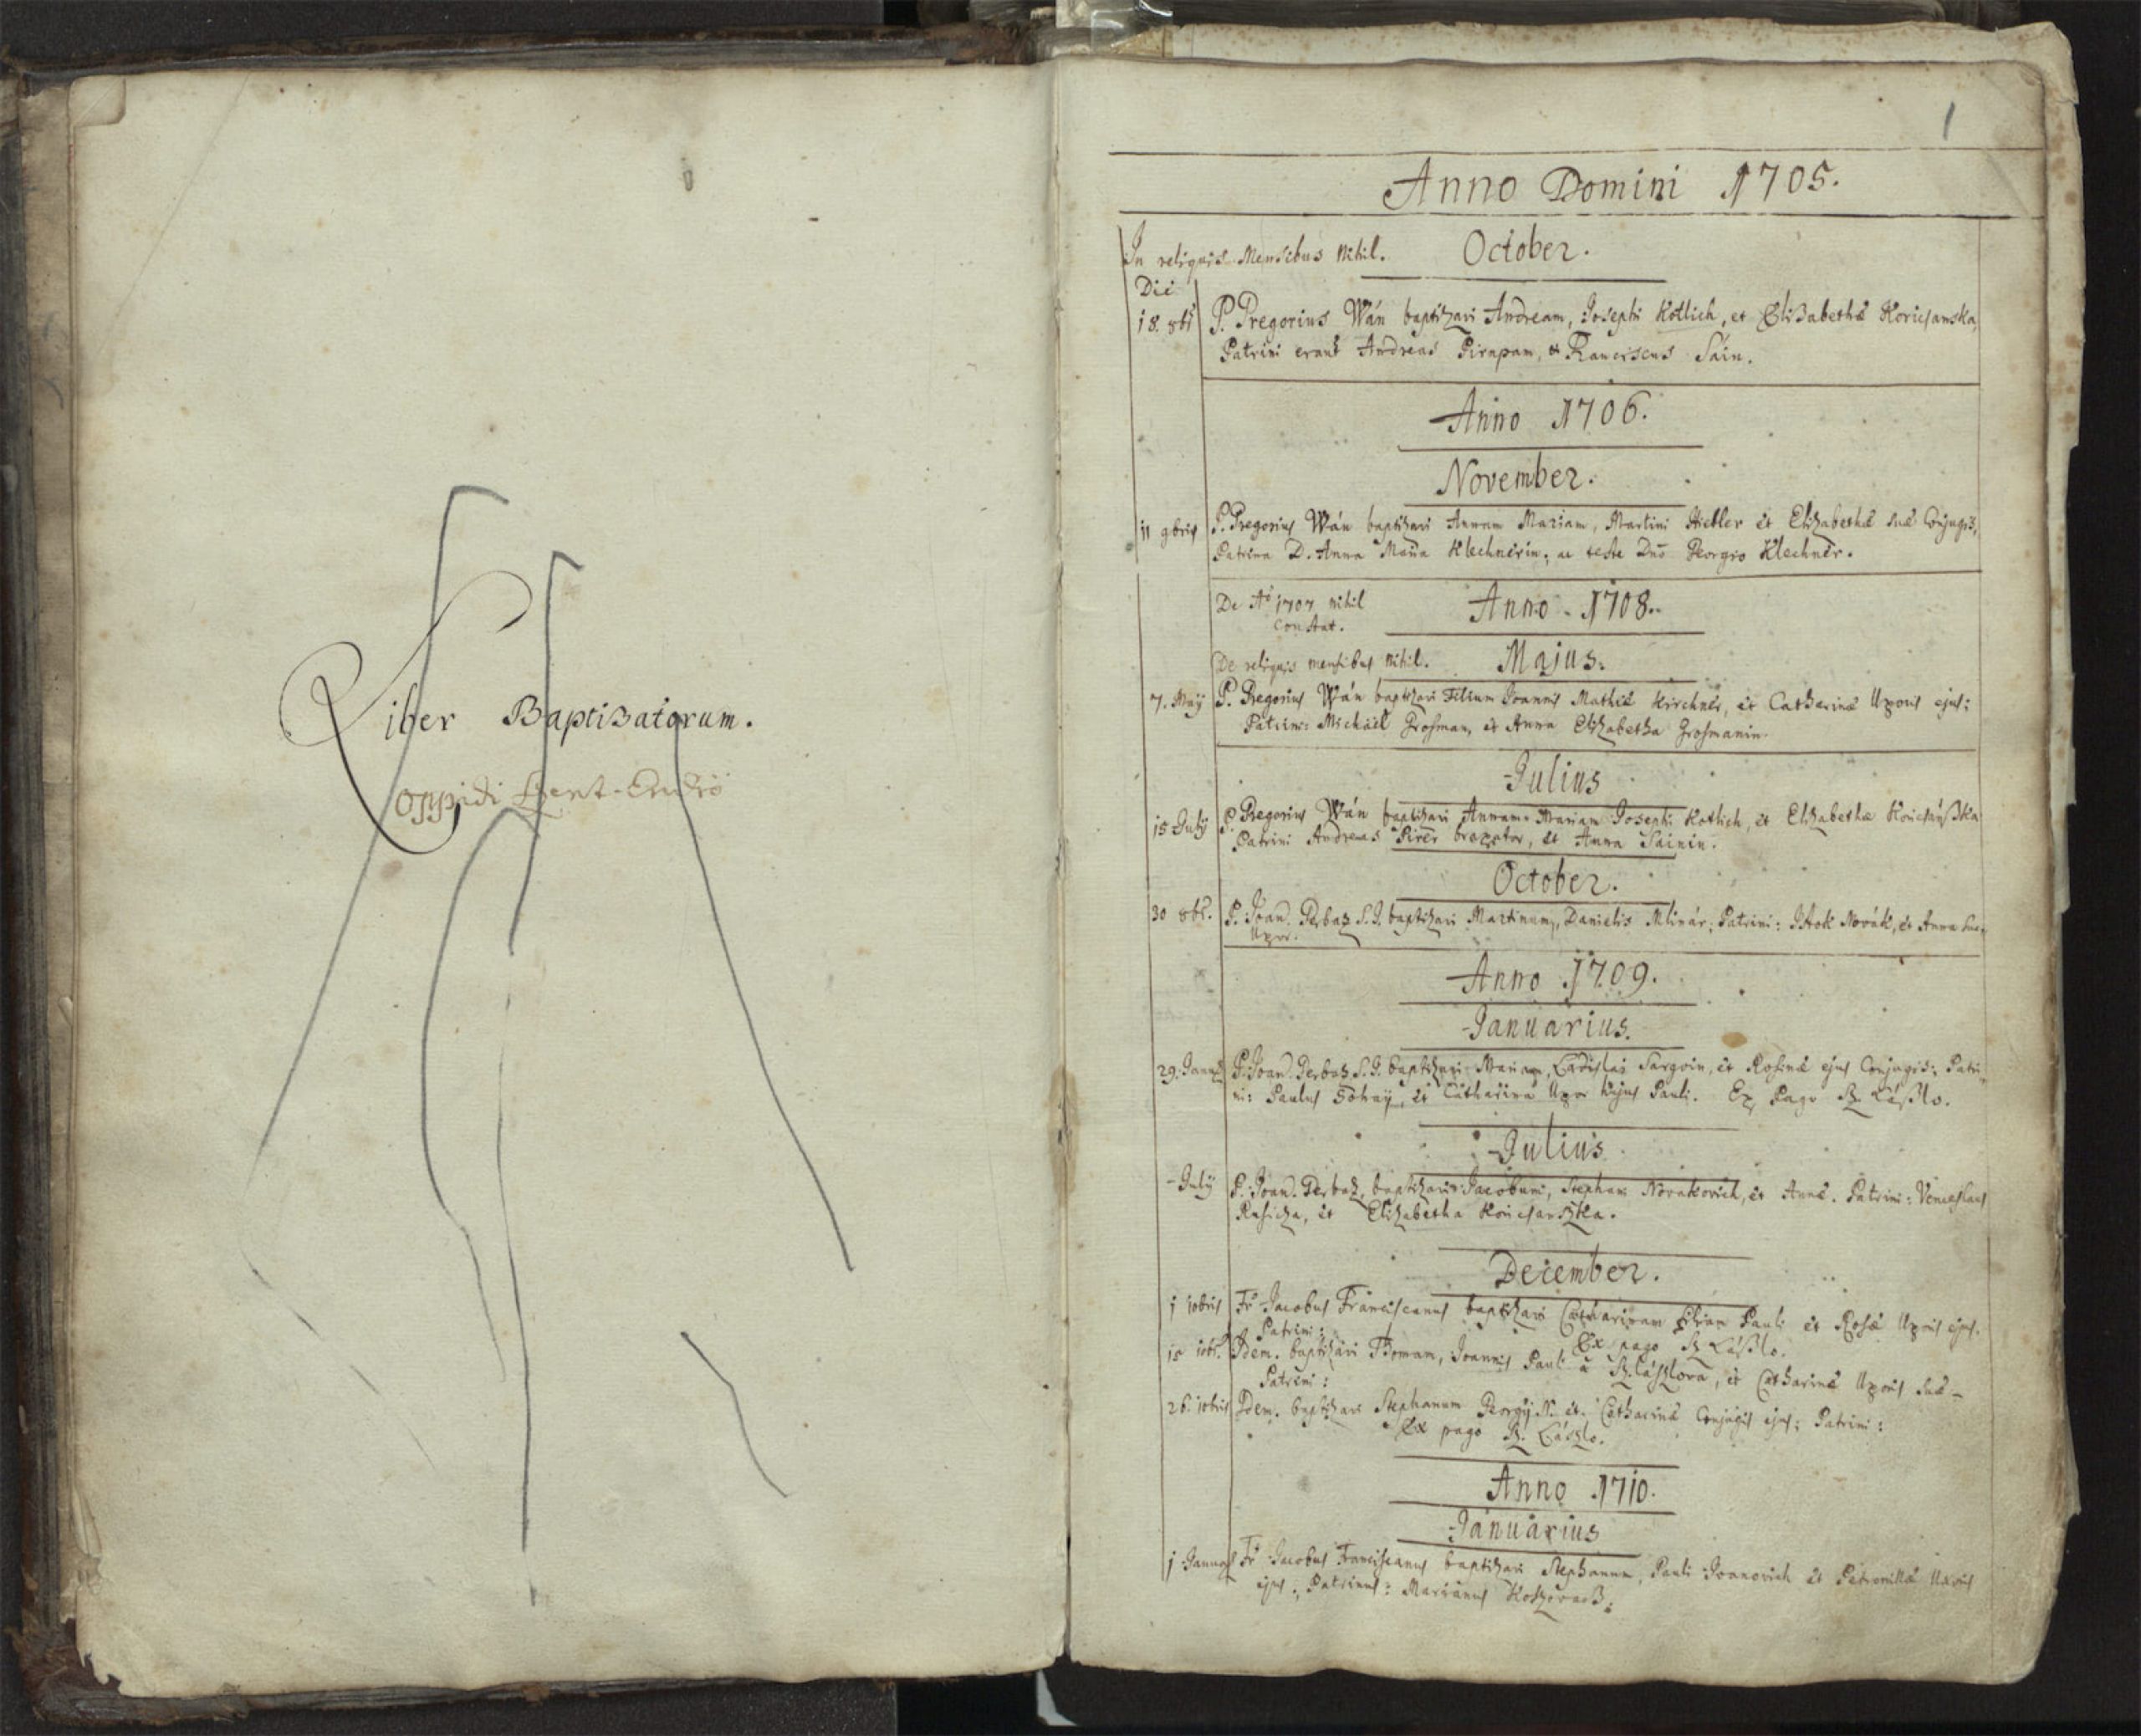 Liber Baptisatorum.
Oppidi Szent-Endrö
1
Anno Domini 1705.
In reliquis Mensibus nihil. October.
Die
18. 8bř P. Gregorius Wán baptizavi Andream, Josephi Kotlich, et Elisabethæ Koricsanska,
Patrini erant Andreas Pirnpam, & Franciscus Sáin.
Anno 1706.
November.
11 9bris P. Gregorius Wán baptizavi Annam Mariam, Martini Hiebler et Elizabethæ suæ Conjugis,
Patrina D. Anna Maria Klechnerin, ac teste Dno Georgio Klechner.
De Aō 1707 nihil constat. Anno 1708.
De reliquis mensibus nihil. Majus.
7. May P. Gregorius Wán baptizavi Filium Joannis Mathiæ Kirchner, et Catharinæ Uxoris ejus:
Patrini: Michaël Grosman, et Anna Elizabetha Grosmanin.
Julius
15 July P. Gregorius Wán baptizavi Annam Mariam Josephi Kotlich, et Elizabethæ
Patrini Andreas Pirer et Anna Sainin.
October.
30 8bř. P. Joan. Gerbaz S.J. baptizavi Martinum, Danielis Mlinár; Patrini: Istok Novák, et Anna sua
Uxor.
Anno 1709.
Januarius.
29. P. Joan. Gerbaz S.J. baptizavi Mariam, Ladislai Sargvin, et Rosinæ ejus Conjugis; Patri-
ni: Paulus et Catharina Uxor hujus Pauli. Ex Pago Sz. László.
Julius
- July P. Joan. Gerbaz, baptizavi Jacobum, Stephani Novakovich, et Annæ. Patrini: Venceslaus
Rusicza, et Elizabetha Koricsanszka.
December.
1 10bris Fr Jacobus Franciscanus baptizavi Catharinam filiam Pauli et Rosæ Uxoris ejus.
Patrini: Ex pago Sz László.
15 10bř. Idem. baptizavi Thomam, Joannis Pauli à Sz. lászlova, et Catharinæ Uxoris suæ -
Patrini:
26. 10bris Idem. baptizavi Stephanum Georgÿ N. et Catharinæ Conjugis ejus; Patrini:
Ex pago Sz. László.
Anno 1710.
Januarius
1 Fr Jacobus Franciscanus baptizavi Stephanum, Pauli Ivanovich et Petronillæ Uxoris
ejus; Patrinus: Marianus